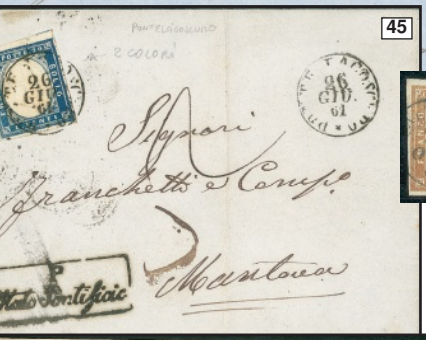 45
PONTELAGOSCURO
2 COLORI
26
GIU.
61
PONTE LAGOSCURO
26
GIU.
61
Signori
Franchetti e Comp.º
Mantova
P.
Stato Pontificio